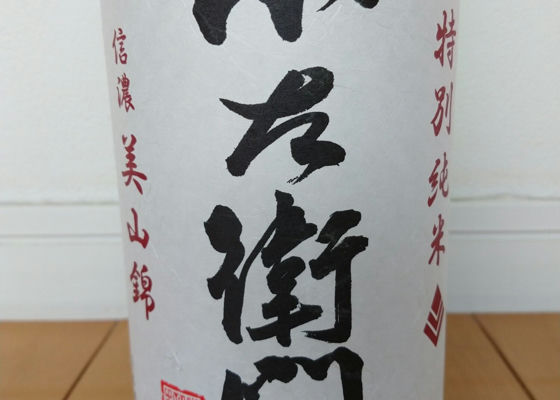 特別純米
右衛門
信濃 美山錦